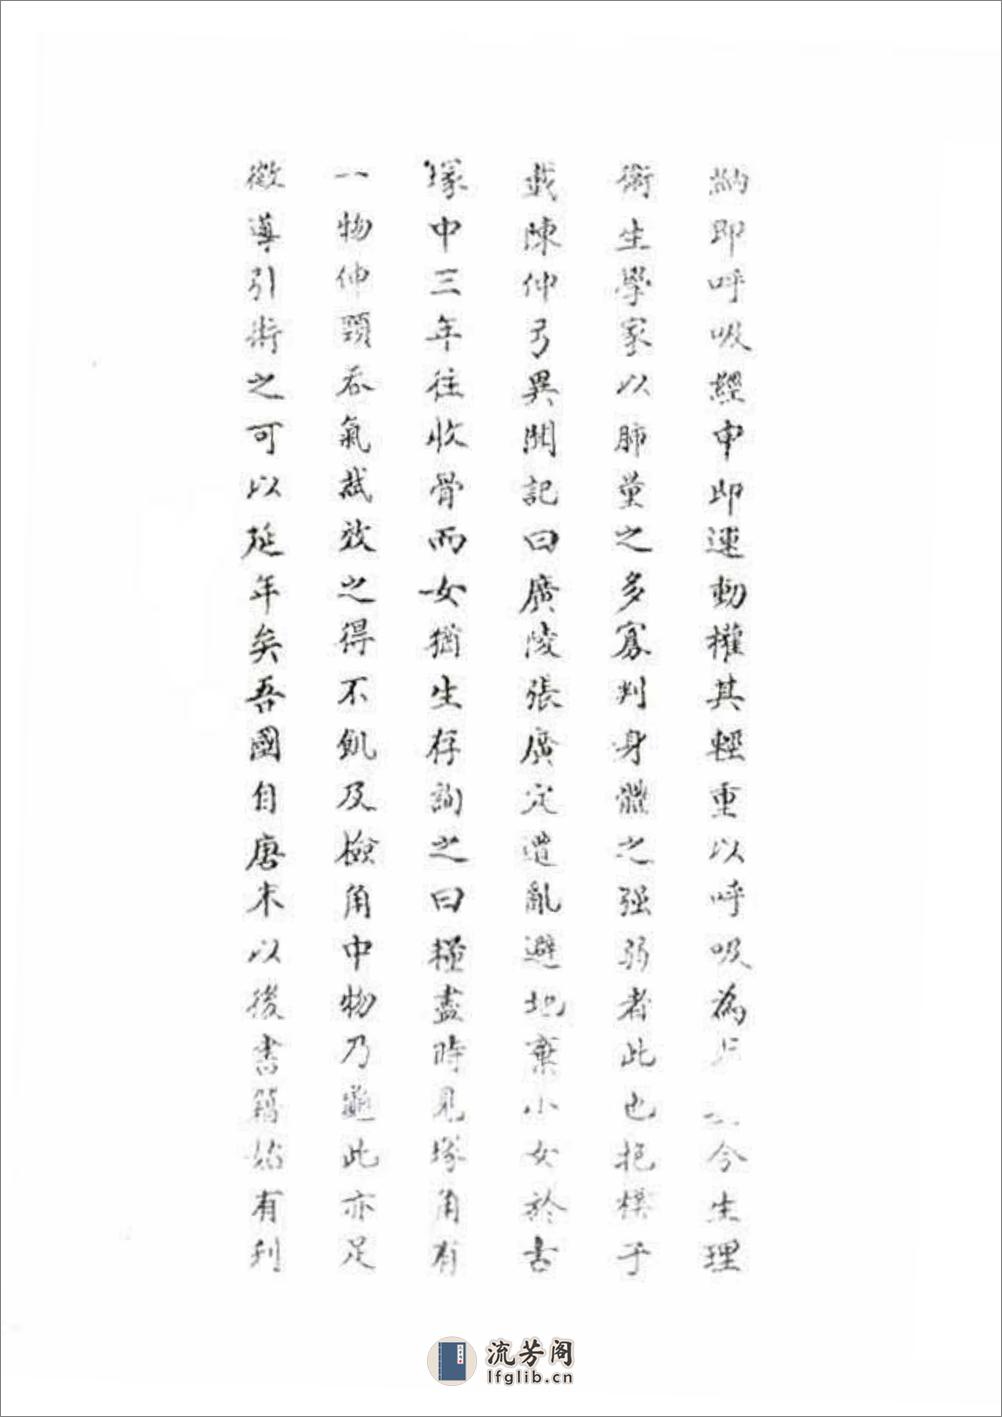 納即呼吸經申即運動權其輕重以呼吸為上 之今生理
衛生學家以肺量之多寡判身體之强弱者此也抱樸子
載陳仲弓異聞記曰廣陵張廣定遭亂避地棄小女於古
塚中三年往收骨而女猶生存詢之曰糧盡時見塚角有
一物伸頸吞氣試效之得不飢及檢角中物乃龜此亦足
徵導引術之可以延年矣吾國自唐末以後書籍始有刊
流芳阁
lfglib.cn